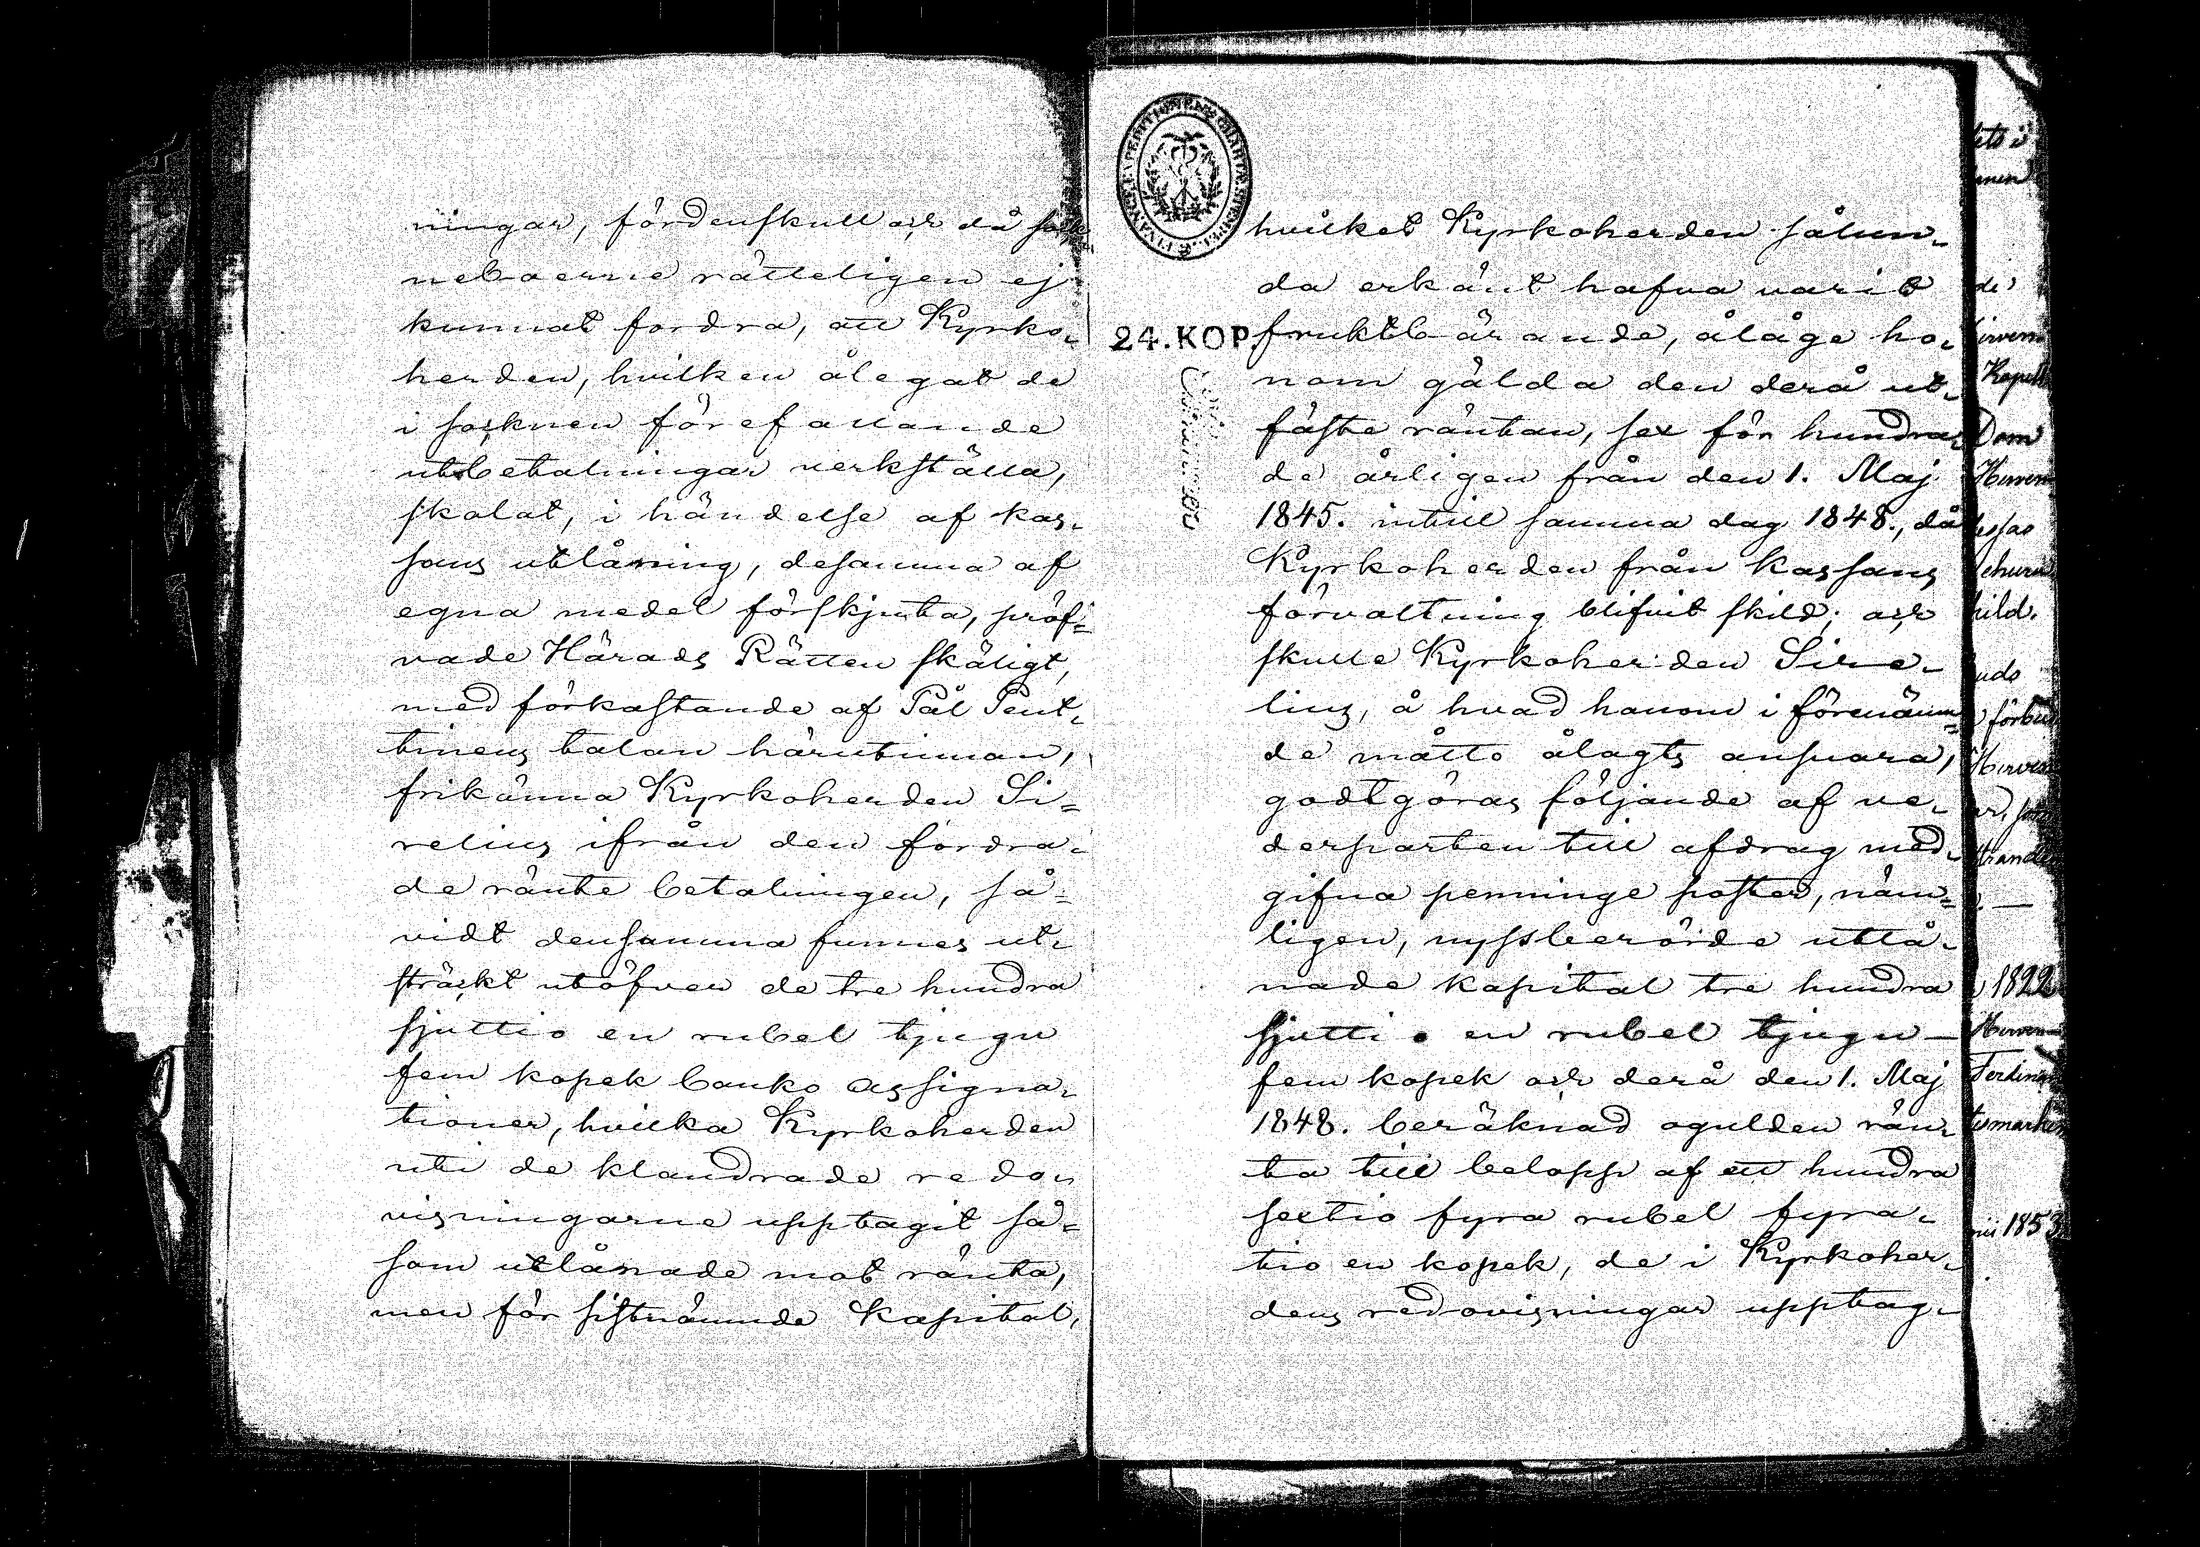 ningar, fördenskull och då sock¬
neboerne rätteligen ej
kunnat fordra, att Kyrko¬
herden, hvilken ålegat de
i socknen förefallande
utbetalningar verkställa,
skolat, i händelse af kas¬
sans utlåning, desamma af
egna medel förskjuta, pröf¬
vade Härads Rätten skäligt,
med förkastande af Pål Pent¬
tinens talan härutinnan,
frikänna Kyrkoherden Si¬
relius ifrån den fordra¬
de ränte betalningen, så¬
vidt densamma funnes ut¬
sträckt utöfver de tre hundra
sjuttio en rubel tjugu
fem kopek banko assigna¬
tioner, hvilka Kyrkoherden
uti de klandrade redo¬
visningarne upptagit så¬
som utlånade mot ränta,
men för sistnämnde Kapital,
FINANCE EXPEDITIONENS CHARTÆ STEMPEL
24. KOP.
hvilket Kyrkoherden sålun¬
da erkänt hafva varit
fruktbärande, ålåge ho¬
nom gälda den derå ut¬
fäste räntan, sex för hundra¬
de årligen från den 1. Maj
1845. intill samma dag 1848., då
Kyrkoherden från kassans
förvaltning blifvit skild; och
skulle Kyrkoherden Sire¬
lius, å hvad honom i förenämn¬
de måtto ålagts ansvara,
godtgöras följande af ve¬
derparten till afdrag med¬
gifna penninge poster, näm¬
ligen, nyssberörde utlå¬
nade kapital tre hundra
sjuttio en rubel tjugu¬
fem kopek och derå den 1. Maj
1848. beräknad ogulden rän¬
ta till belopp af ett hundra
sextio fyra rubel fyra¬
tio en kopek, de i Kyrkoher¬
dens redovisningar upptag¬
1822
1853